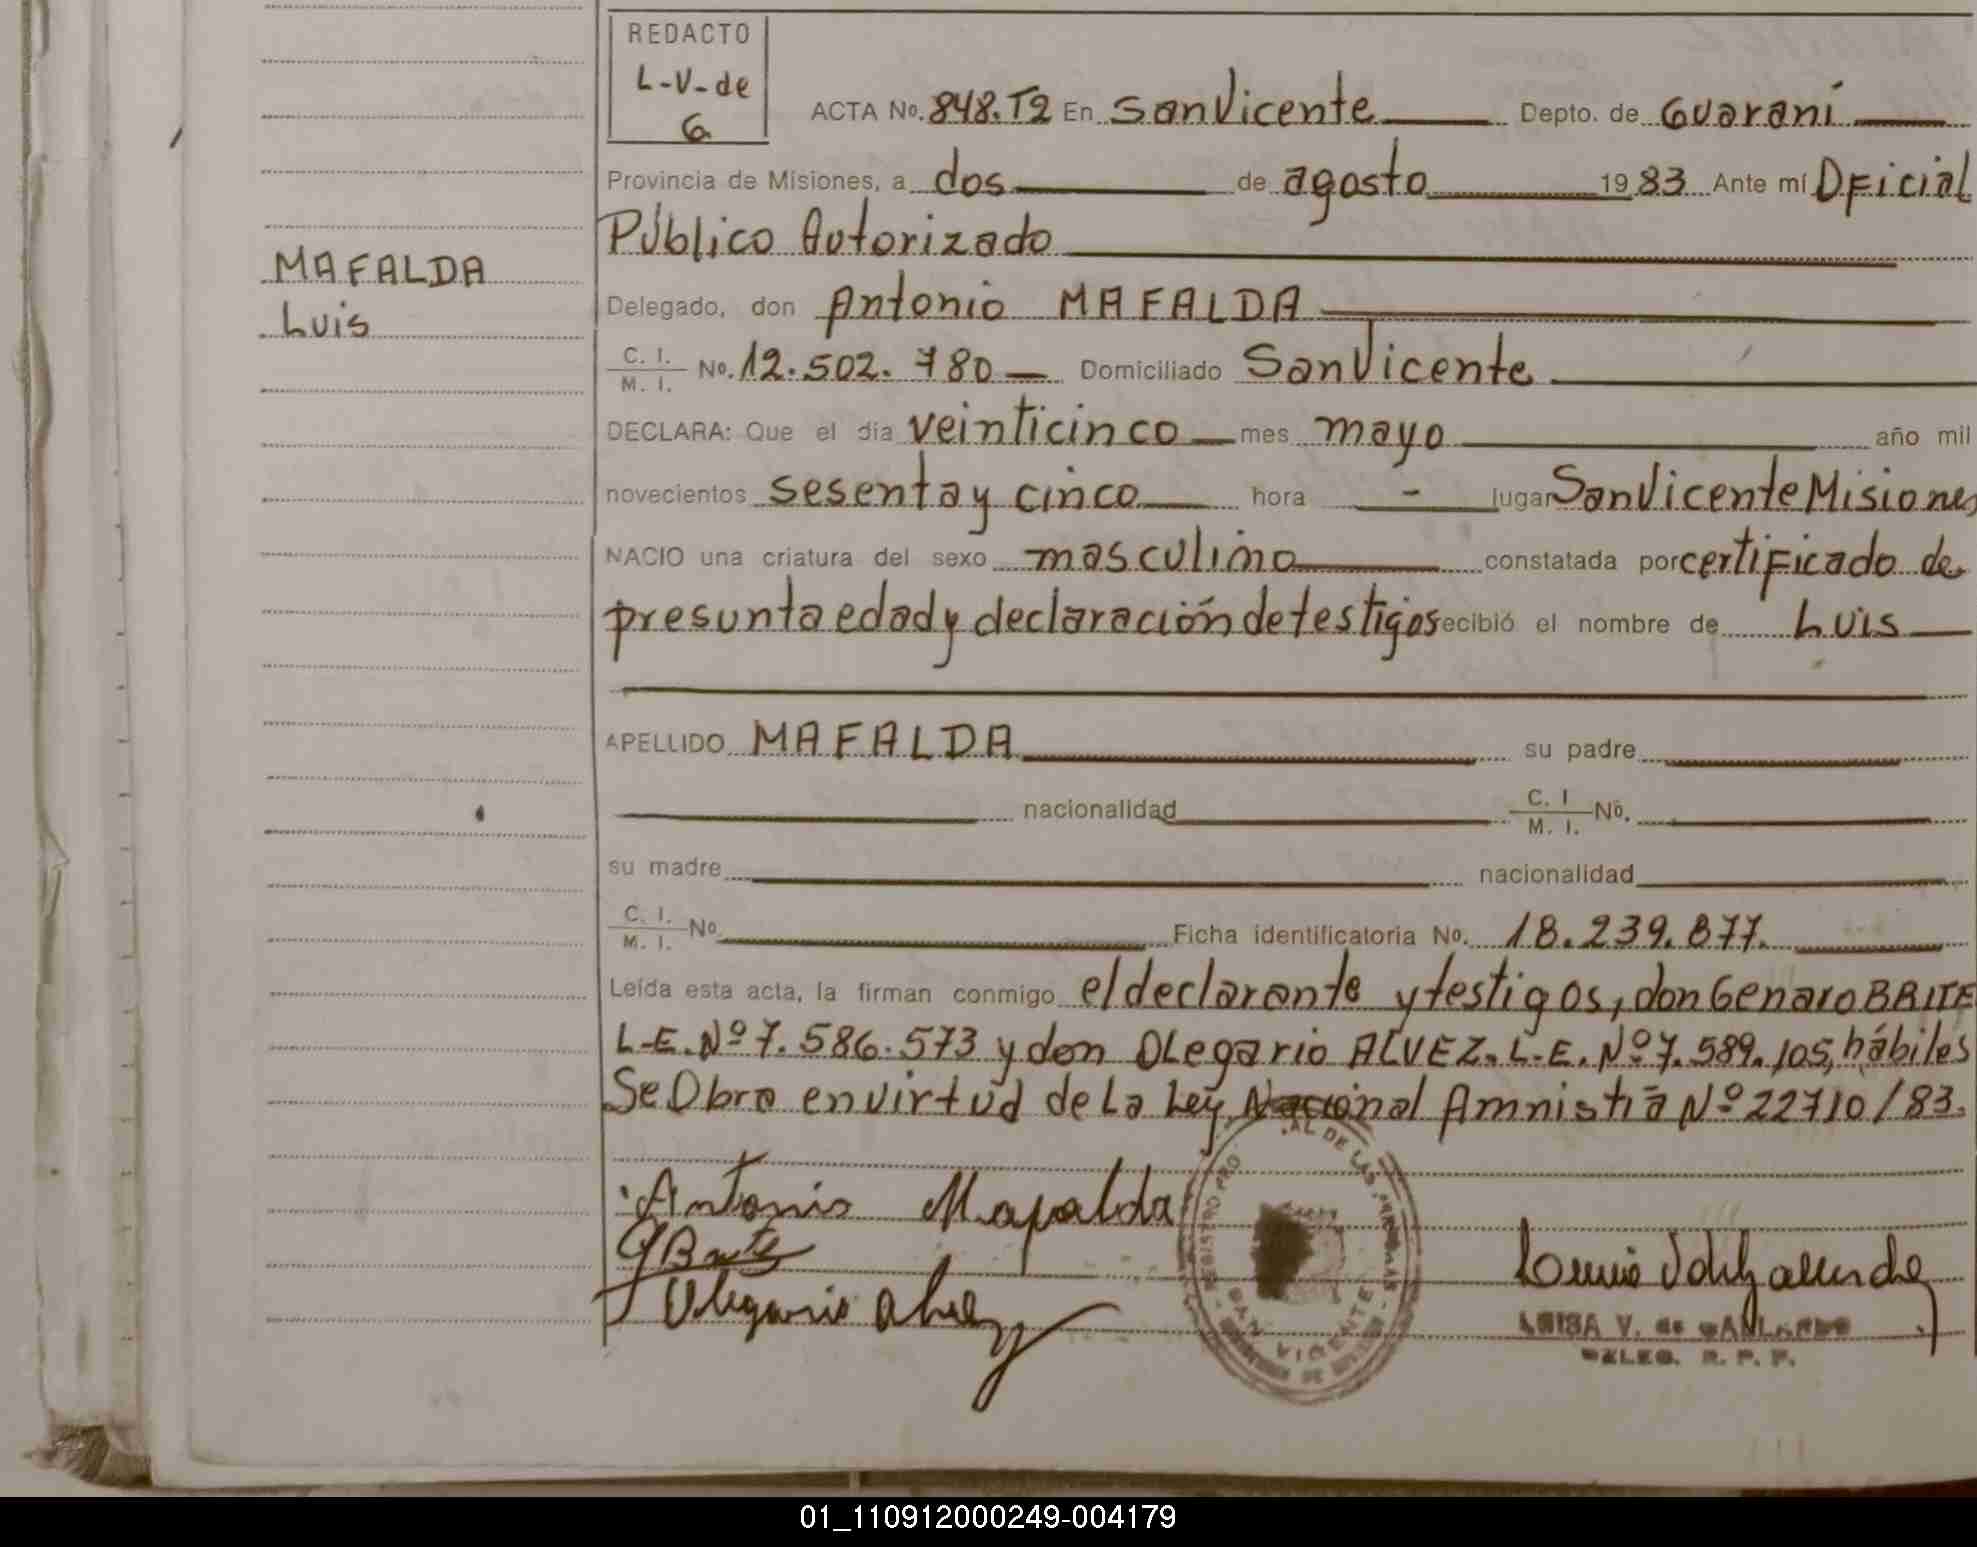 REDACTO
L-V-de
G
ACTA No. 848.T2 En San Vicente Depto. de Guaraní
Provincia de Misiones, a dos de agosto 1983 Ante mí Oficial
Público Autorizado
MAFALDA
Luis
Delegado, don Antonio MAFALDA
C. I. / M. I. No. 12.502.780 Domiciliado San Vicente
DECLARA: Que el día veinticinco mes mayo año mil
novecientos sesenta y cinco hora - lugar San Vicente Misiones
NACIO una criatura del sexo masculino constatada por certificado de
presunta edad y declaración de testigos recibió el nombre de Luis
APELLIDO MAFALDA su padre
nacionalidad C. I / M. I. No.
su madre nacionalidad
C. I. / M. I. No Ficha identificatoria No. 18.239.877.
Leída esta acta, la firman conmigo el declarante y testigos, don Genaro BRITE
L.E. Nº 7.586.573 y don Olegario ALVEZ. L.E. Nº 7.589.105, hábiles
Se Obra en virtud de la Ley Nacional Amnistía Nº 22710/83.
Antonio Mafalda
Olegario Alvez
AL DE LAS
REGISTRO PRO
SAN VICENTE
LUISA V. de GALLARDO
DELEG. R. P. P.
01_110912000249-004179